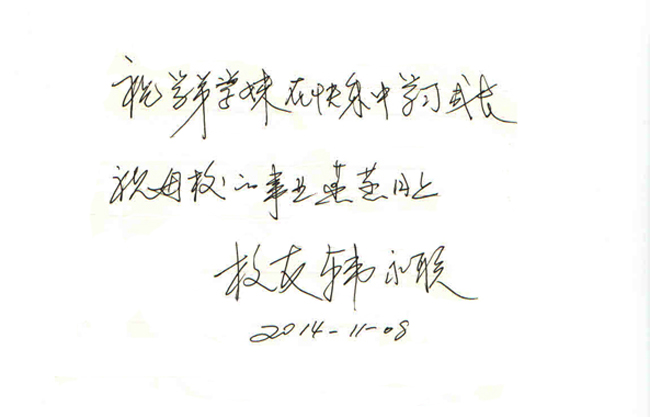 祝学弟学妹在快乐中学习成长
祝母校的事业蒸蒸日上
校友韩永联
2014-11-08